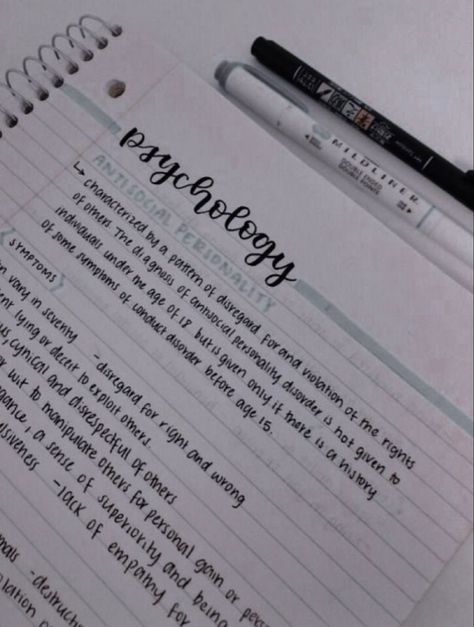 psychology
ANTISOCIAL PERSONALITY
↳ characterized by a pattern of disregard for and violation of the rights
of others. The diagnosis of antisocial personality disorder is not given to
individuals under the age of 18 but is given only if there is a history
of some symptoms of conduct disorder before age 15.
SYMPTOMS
vary in severity -disregard for right and wrong
lying or deceit to exploit others
cynical and disrespectful of others
wit to manipulate others for personal gain or
a sense of superiority and being
-lack of empathy for
-destructive
MILDLINER
DOUBLE ENDED